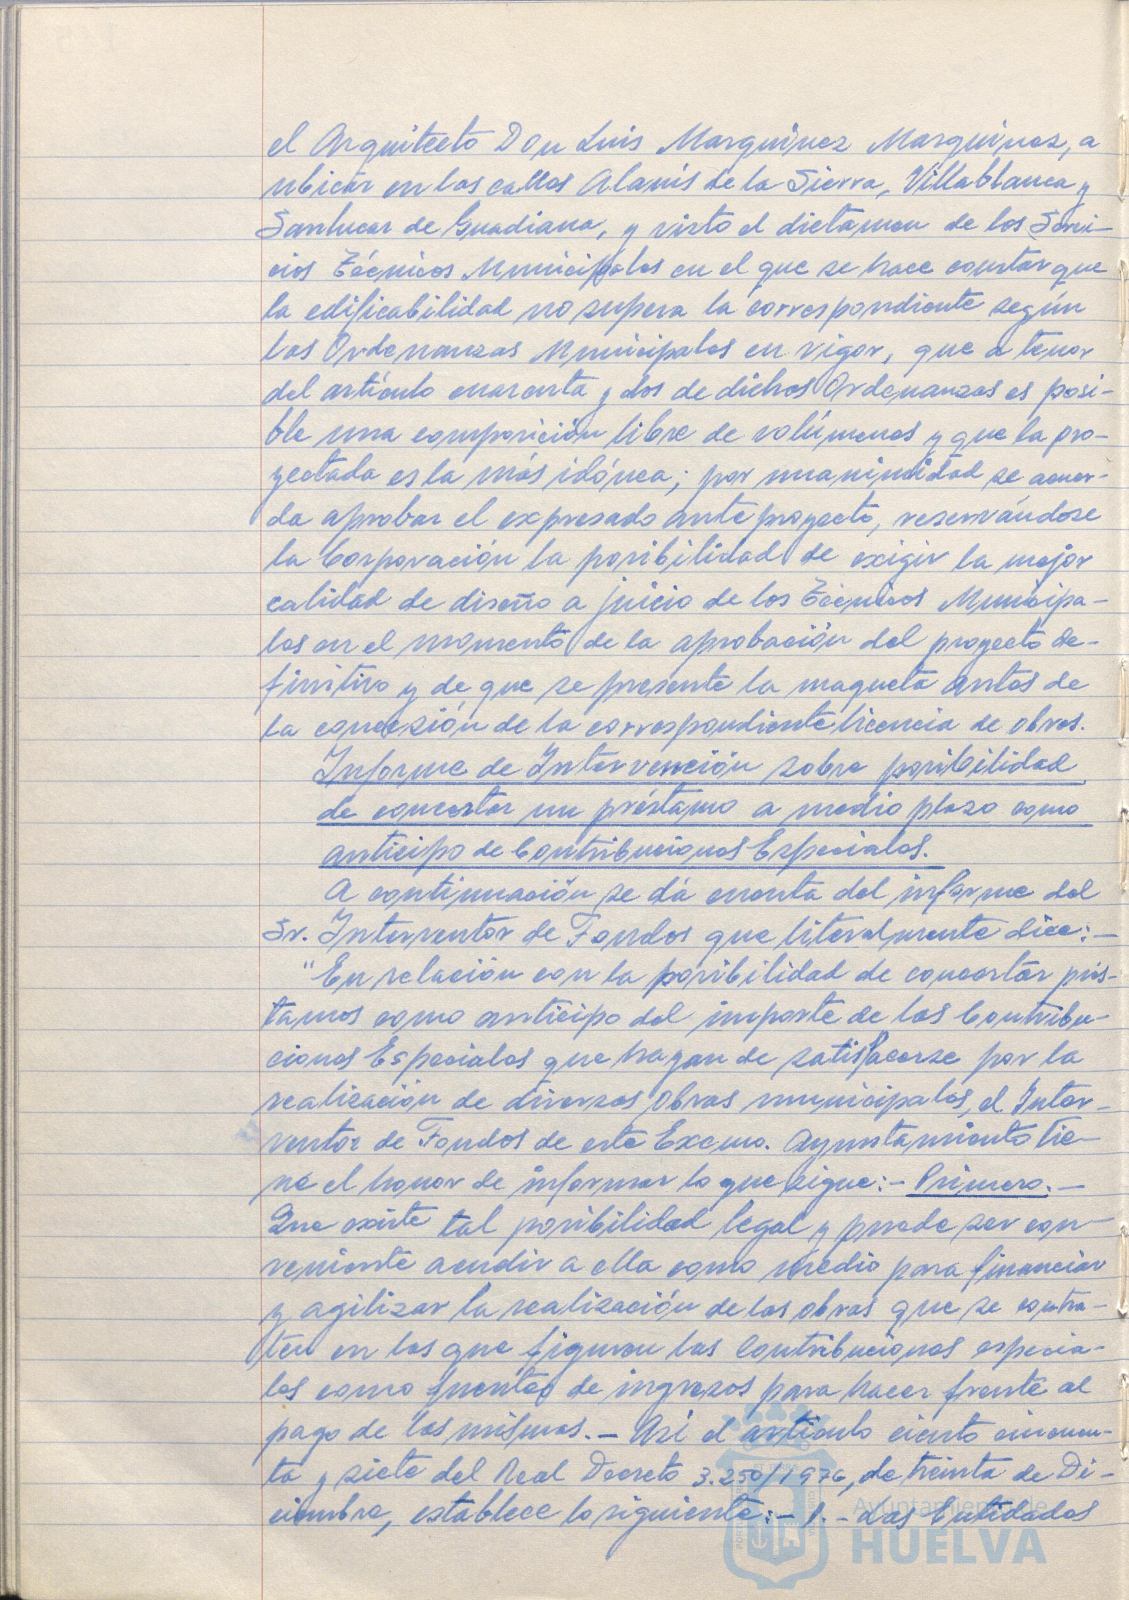 el Arquitecto Don Luis Marquínez Marquínez, a
ubicar en las calles Alanís de la Sierra, Villablanca y
Sanlucar de Guadiana, y visto el dictamen de los Servi-
cios Técnicos Municipales en el que se hace constar que
la edificabilidad no supera la correspondiente según
las Ordenanzas Municipales en vigor, que a tenor
del artículo cuarenta y dos de dichas Ordenanzas es posi-
ble una composición libre de volúmenes y que la pro-
yectada es la más idónea; por unanimidad se acuer-
da aprobar el expresado anteproyecto, reservándose
la Corporación la posibilidad de exigir la mejor
calidad de diseño a juicio de los Técnicos Municipa-
les en el momento de la aprobación del proyecto de-
finitivo y de que se presente la maqueta antes de
la concesión de la correspondiente licencia de obras.
Informe de Intervención sobre posibilidad
de concertar un préstamo a medio plazo como
anticipo de Contribuciones Especiales.
A continuación se dá cuenta del informe del
Sr. Interventor de Fondos que literalmente dice:-
"En relación con la posibilidad de concertar prés-
tamos como anticipo del importe de las Contribu-
ciones Especiales que hayan de satisfacerse por la
realización de diversas obras municipales, el Inter-
ventor de Fondos de este Excmo. Ayuntamiento tie-
ne el honor de informar lo que sigue:- Primero.-
Que existe tal posibilidad legal y puede ser con-
veniente acudir a ella como medio para financiar
y agilizar la realización de las obras que se contra-
ten en las que figuren las Contribuciones especia-
les como fuentes de ingresos para hacer frente al
pago de las mismas.- Así el artículo ciento cincuen-
ta y siete del Real Decreto 3.250/1976, de treinta de Di-
ciembre, establece lo siguiente:- 1.- Las Entidades
Ayuntamiento de
HUELVA